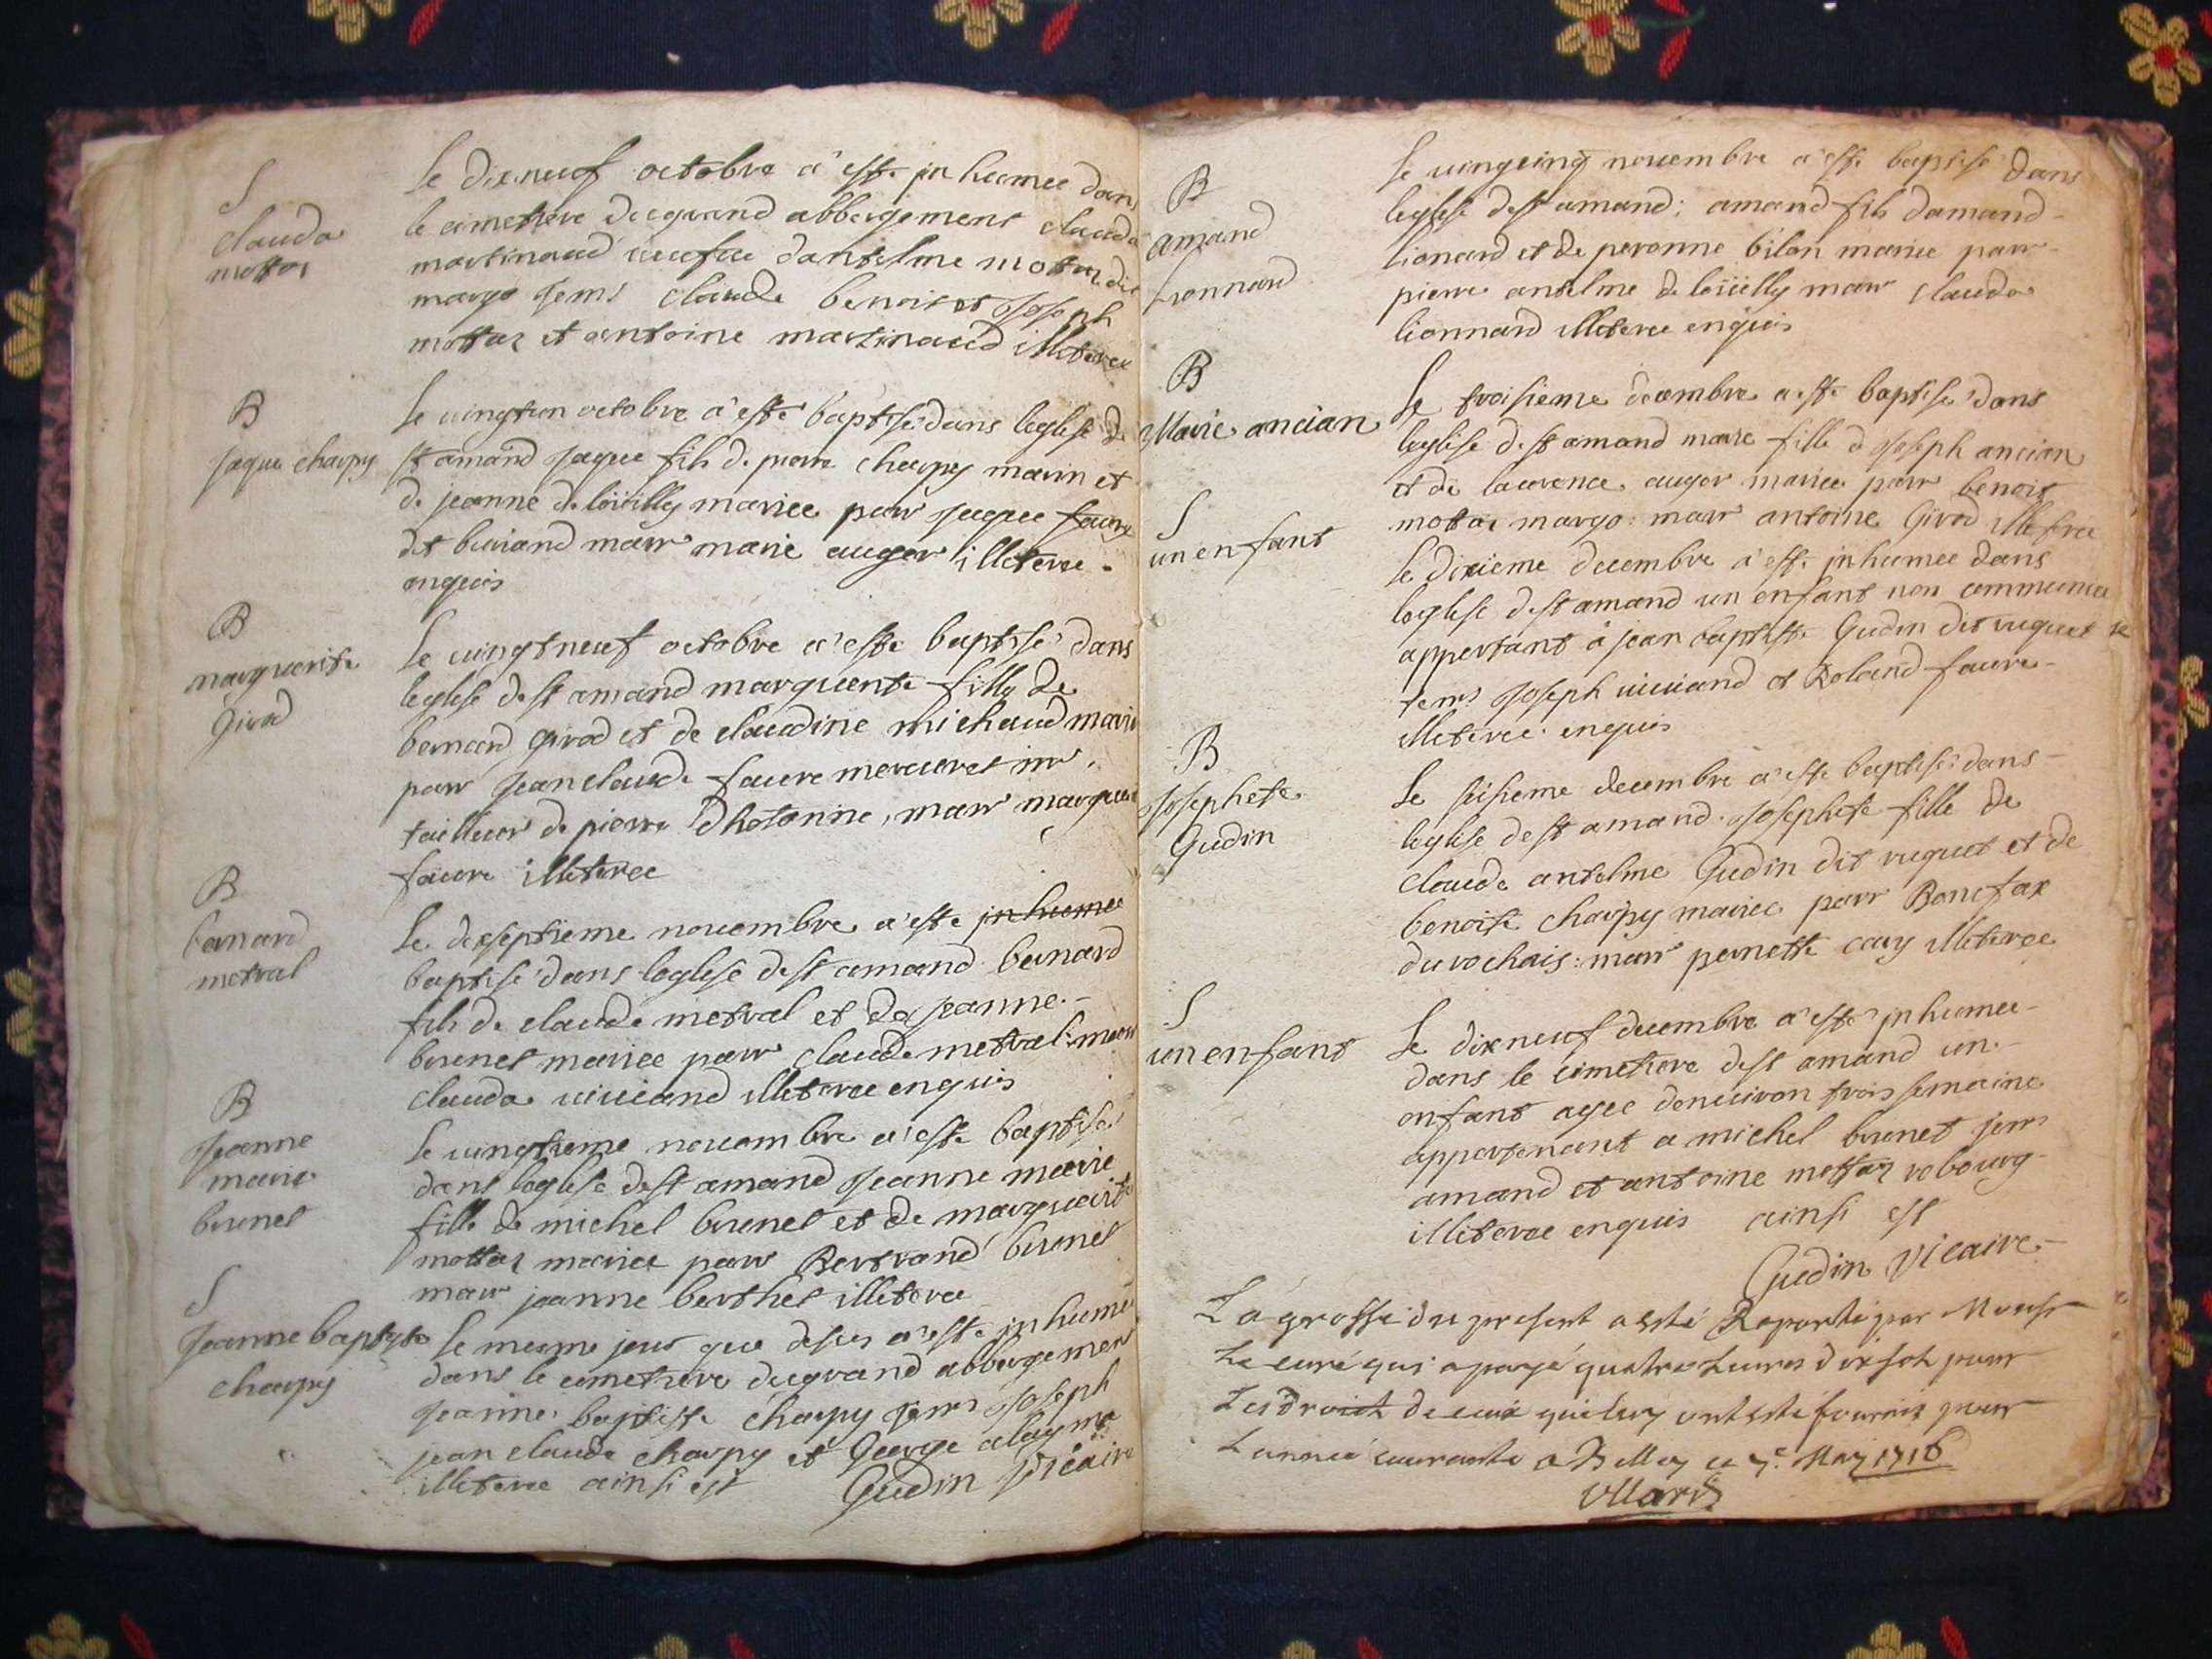 S
clauda
mottaz
le dixneuf octobre a esté jnhumée dans
le cimetiere de grand abbergement clauda
martinand veufve dantelme mottaz dit
margo tems claude benoit et Joseph
mottaz et antoine martinand illiteree
B
Jaque charpy
le vingtun octobre a esté baptisé dans leglise de
st amand Jaque fils de pierre charpy marin et
de jeanne de loüilly mariee parr Jaque faure
dit buiand marr marie auger illiteree
enquis
B
marguerite
Girod
le vingtneuf octobre a esté baptisé dans
leglise de st amand marguerite fille de
bernard girod et de claudine michaud marie
parr Jean claude faure mercuret mr
tailleur de pierre dhotonne, marr marguerite
faure illiteree
B
bernard
metral
le dixseptieme novembre a esté jnhumee
baptisé dans leglise de st amand bernard
fils de claude metral et de jeanne
brunet mariee parr claude metral marr
clauda viviand illiteree enquis
B
Jeanne
marie
brunet
le vingtieme novembre a esté baptisé
dans leglise de st amand Jeanne marie
fille de michel brunet et de marguerite
mottaz mariee parr Bertrand brunet
marr jeanne berthet illiteree
S
Jeanne baptyste
charpy
le mesme jour que desus a esté jnhumé
dans le cimetiere du grand abbergement
Jeanne baptiste charpy tems Joseph
jean claude charpy et George alaymo
illiteree ainsi est Gudin Vicaire
B
amand
lionnard
le vingcinq novembre a esté baptisé dans
leglise de st amand; amand fils damand
lionard et de peronne bilon mariee parr
pierre antelme de loüilly marr clauda
lionnard illiteree enquis
B
Marie ancian
le troisieme decembre a esté baptisé dans
leglise de st amand marie fille d Joseph ancian
et de laurence auger mariee parr benoit
mottaz margo: marr antoine Girod illitree
S
un enfant
le dixieme decembre a esté jnhumee dans
leglise de st amand un enfant non communié
appertant a jean baptiste Gudin dit ruquet
tems Joseph viviand et Roland faure
illiteree enquis
B
Josephete
Gudin
le seisieme decembre a esté baptisé dans
leglise de st amand Josephete fille de
claude antelme Gudin dit ruquet et de
benoite charpy mariee parr Bonefax
durochais: marr pernette cary illiteree
S
un enfant
le dixneuf decembre a esté jnhumee
dans le cimetiere de st amand un
enfant agee denviron trois semaine
appertenant a michel brunet tems
amand et antoine mottaz rebourg
illiteree enquis ainsi est
Gudin Vicaire
La grosse du present a esté Raporté par Monsr
Le curé qui a payé quatre Livres dix sols pour
Les droict de ceux qui luy ont esté fournis pour
L année courante a Belley ce 7e May 1716